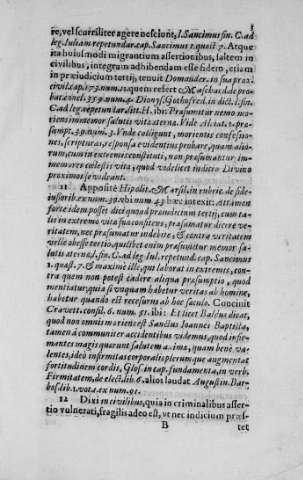 re, vel scurriliter agere nesciunt, l. Sancimus fin. C. ad
leg. Iuliam repetundar. cap. Sancimus 1. quæst. 7. Atque
ita huiusmodi migrantium assertionibus, saltem in
civilibus, integram adhibendam esse fidem, etiam
in præiudicium tertij, tenuit
civil. cap. 173. num. refert Mascard. de pro-
bat. concl. 359. num. 4. Dionys. Gothofred. in dict. l. fin.
C. ad leg. repetundar. litt. H. ibi: Præsumitur nemo mo-
riens immemor salutis vitæ æternæ. Vide Aldat. 2. præ-
sumpt. 39. num. 3. Vnde colligunt, morientis confessio-
nes, scripturas, responsa evidentius probare, quam alio-
rum, cum in extremis constituti, non præsumantur im-
memores cælestis vitæ, quod videlicet iudicio Divino
proximos se videant.
11 Apposite Hipolit. Marsil. in rubric. de fide-
iussorib. ex num. 39. vbi num. 43. hæc intexit: Attamen
forte idem posset dici quoad præiudicium tertij, cum ta-
lis in extremo vitæ suæ constitutus, præsumatur dicere ve-
ritatem, nec præsumatur indebite, & contra veritatem
velle abesse tertio, quilibet enim præsumitur memor salu-
tis æternæ, l. fin. C. ad leg. Iul. repetund. cap. Sancimus
1. quæst. 7. & maxime ille, qui laborat in extremis, con-
tra quem non potest cadere aliqua præsumptio, quod
mentiatur, quia si vnquam habetur veritas ab homine,
habetur quando est recessurus ab hoc sæculo. Concinit
Cravett. consil. 6. num. 91. ibi: Et licet Baldus dicat,
quod non omnis moriens est Sanctus Ioannes Baptista,
tamen à communiter accidentibus videmus, quod infir-
mantes magis quærunt salutem animæ, quam bene va-
lentes, ideò infirmitas corporalis plerumque augmentat
fortitudinem cordis, Glos. in cap. fundamenta, in verb.
Firmitatem, de elect. lib. 6. alios laudat Augustin. Bar-
bos. lib. 1. vota ex num. 91.
12 Dixi in civilibus, quia in criminalibus asser-
tio vulnerati, fragilis adeò est, vt nec indicium præs-
B tet